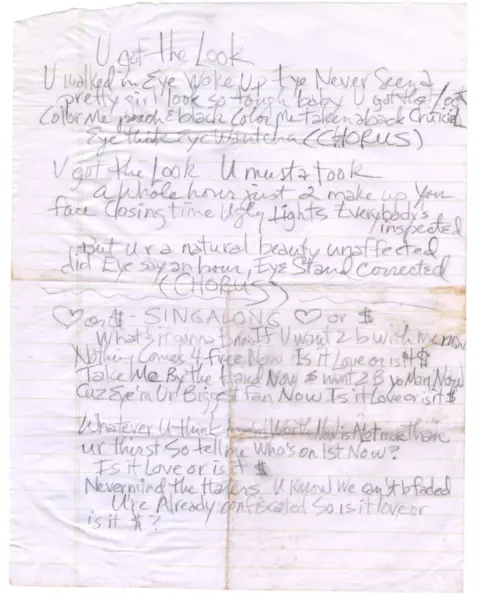 U got the Look
U walked in Eye Woke Up Eye Never Seen a
pretty girl look so tough baby U got that look
Color Me peach & black Color Me taken aback Crucial
Eye think Eye Wantcha (CHORUS)
U got the Look U musta took
a Whole hour just 2 make up Your
face Closing time Ugly Lights Everybody's
inspected
but U r a natural beauty unaffected
did Eye say an hour, Eye Stand Corrected
(CHORUS)
♡ or $ - SINGALONG ♡ or $
What's it gonna If U want 2 b with me now
Nothing Comes 4 free Now Is it Love or is it $
Take Me By the Hand Now want 2 B yo Man Now
Cuz Eye'm Ur Biggest fan Now Is it Love or is it $
Whatever U think Worth Now is Not more than
ur thirst So tell me Who's on 1st Now?
Is it Love or is it $
Nevermind the Haters U know We can't b faded
U're Already confiscated So is it love or
is it $?